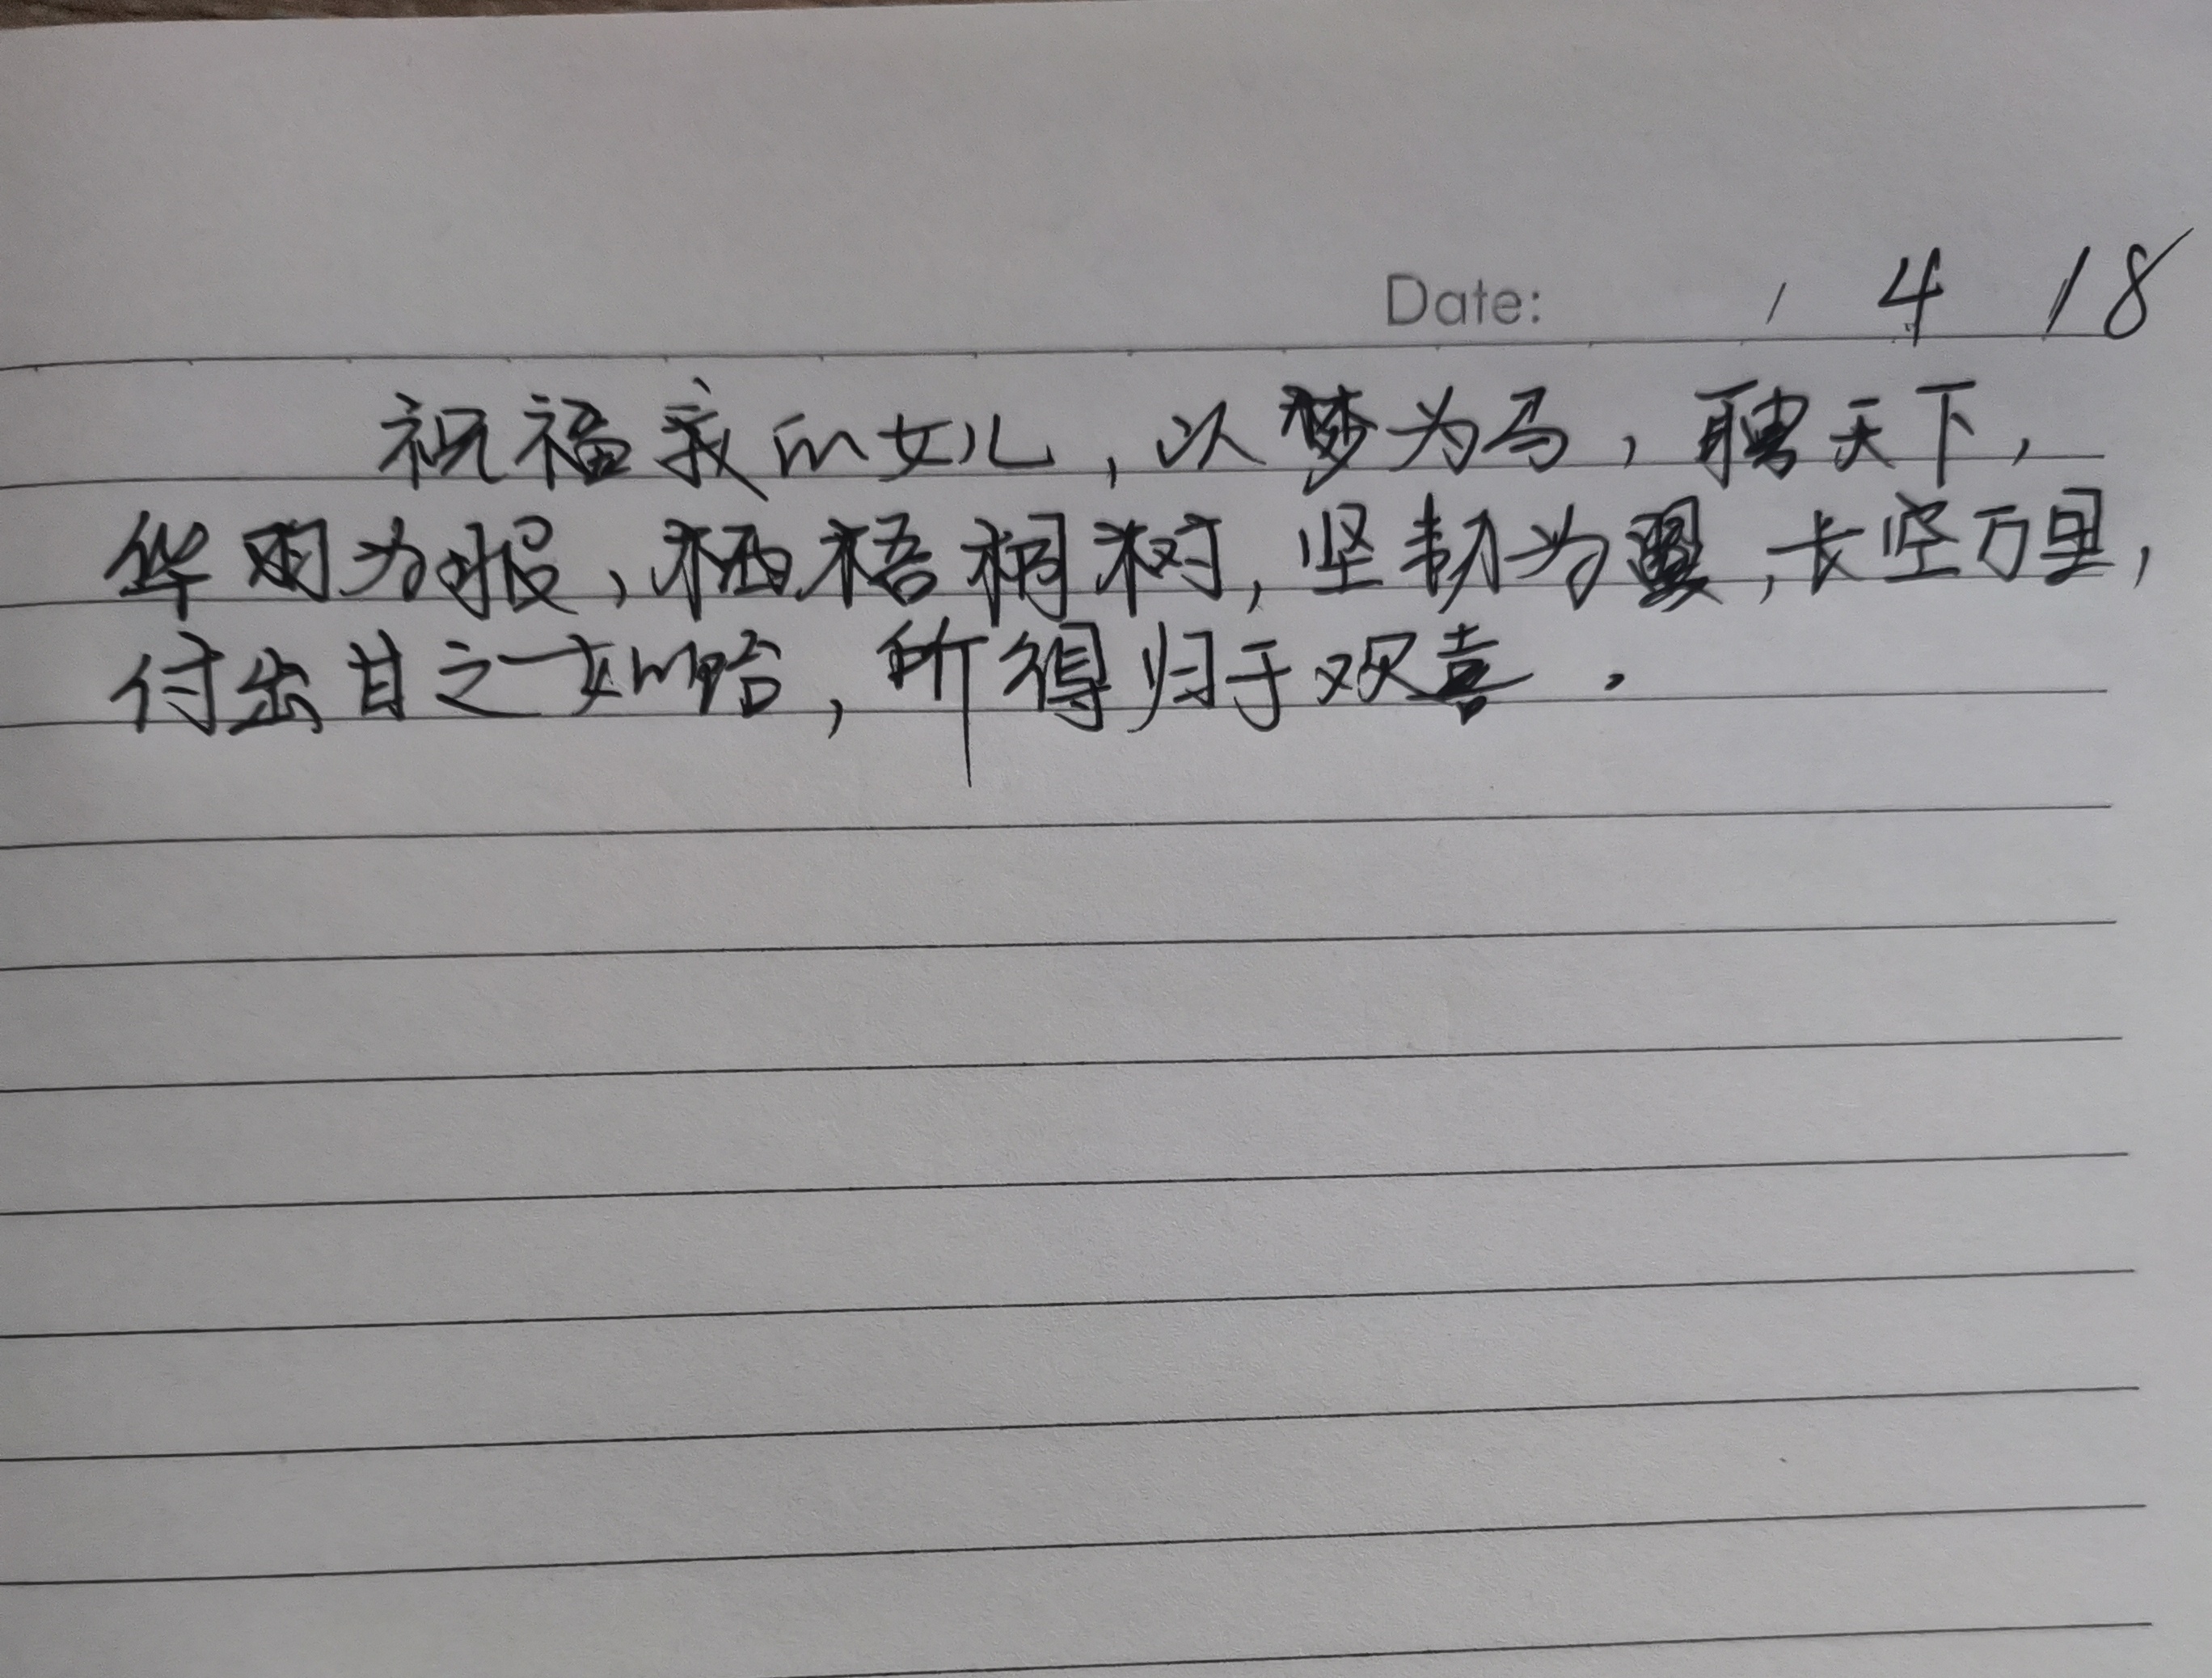 Date: / 4 / 18
祝福我的女儿，以梦为马，聘天下，
华 为报，栖梧桐树，坚韧为翼，长空万里，
付出甘之如饴，所得归于欢喜．